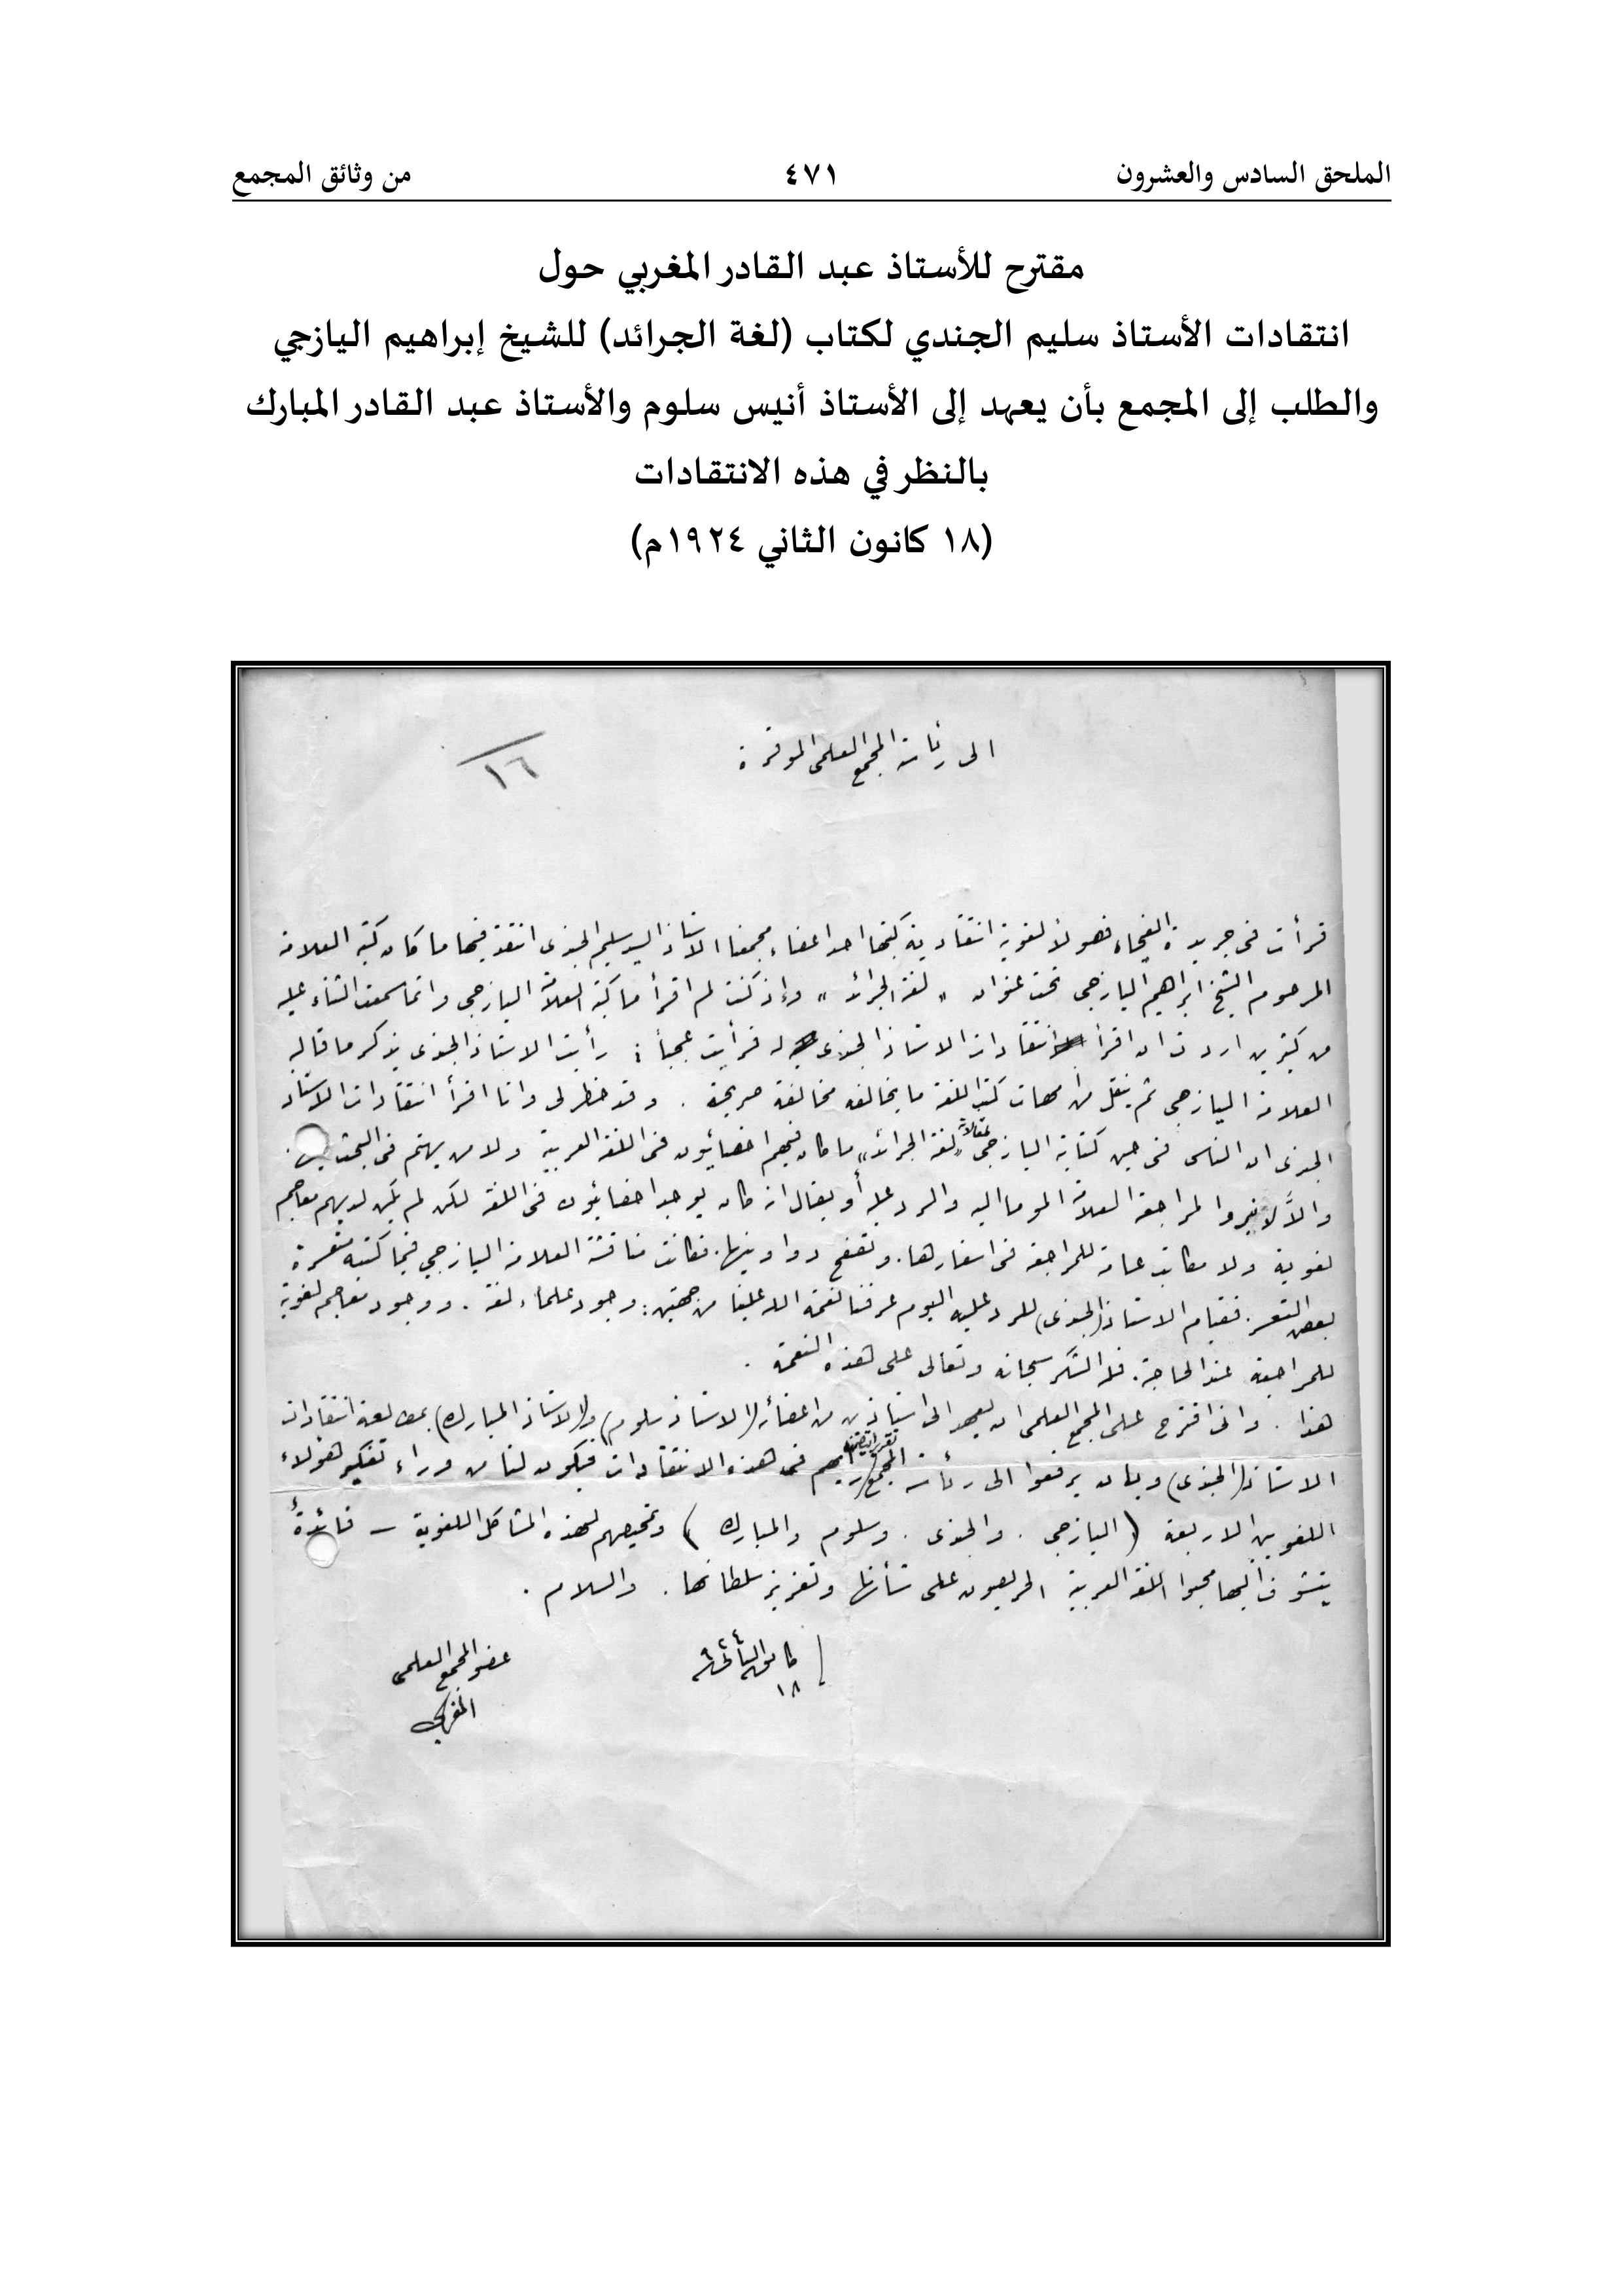 الملحق السادس والعشرون ٤٧١ من وثائق المجمع
مقترح للأستاذ عبد القادر المغربي حول
انتقادات الأستاذ سليم الجندي لكتاب (لغة الجرائد) للشيخ إبراهيم اليازجي
والطلب إلى المجمع بأن يعهد إلى الأستاذ أنيس سلوم والأستاذ عبد القادر المبارك
بالنظر في هذه الانتقادات
(١٨ كانون الثاني ١٩٢٤م)
الى رئاسة المجمع العلمى الموقرة
١٦
قرأت فى جريدة الفيحاء فصولاً لغوية انتقادية كتبها احد اعضاء مجمعنا الاستاذ السيد سليم الجندى انتقد فيها ما كان كتبه العلامة
المرحوم الشيخ ابراهيم اليازجى تحت عنوان « لغة الجرائد » وإذ كنت لم اقرأ ما كتبه العلامة اليازجى وانما سمعت الثناء عليه
من كثيرين اردت ان اقرأ انتقادات الاستاذ الجندى له فرأيت عجباً : رأيت الاستاذ الجندى يذكر ما قاله
العلامة اليازجى ثم ينقل من امهات كتب اللغة ما يخالفه مخالفة صريحة . وقد خطر لى وانا اقرأ انتقادات الاستاذ
الجندى ان الناس فى حين كتابة اليازجى مقالات «لغة الجرائد» ما كان فيهم اخصائيون فى اللغة العربية ولا من يهتم فى البحث
والاَّ لانبروا لمراجعة العلامة الموما اليه والرد عليه أو يقال انه كان يوجد اخصائيون فى اللغة لكن لم يكن لديهم معاجم
لغوية ولا مكاتب عامة للمراجعة فى اسفارها. وتصفح دواوينها. فكانت مناقشة العلامة اليازجي فيما كتبه متعسرة
بعض التعسر. فقيام الاستاذ (الجندى) للرد عليه اليوم عرفنا نعمة الله علينا من جهتين: وجود علماء لغة . ووجود معاجم لغوية
للمراجعة عند الحاجة. فله الشكر سبحانه وتعالى على هذه النعمة .
هذا . وانى اقترح على المجمع العلمى ان يعهد الى استاذين من اعضائه (الاستاذ سلوم) و(الاستاذ المبارك) بمطالعة انتقادات
الاستاذ (الجندى) وبان يرفعوا الى رئاسة المجمع رأيهم فى هذه الانتقادات فيكون لنا من وراء تفكير هؤلاء
اللغويين الاربعة ( اليازجى . والجندى . وسلوم والمبارك ) وتمحيصهم لهذه المشاكل اللغوية – فائدةٌ
يتشوف اليها محبوا اللغة العربية الحريصون على شأنها وتعزيز سلطانها . والسلام .
١٨
عضو المجمع العلمى
المغربي